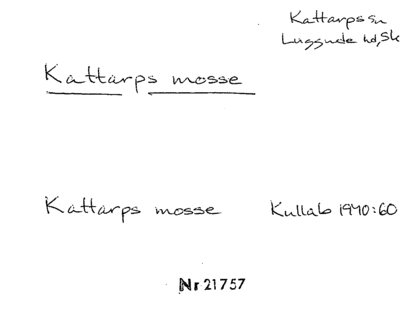 Kattarps sn
Luggude hd, Sk
Kattarps mosse
Kattarps mosse Kullab 1940:60
Nr 21757